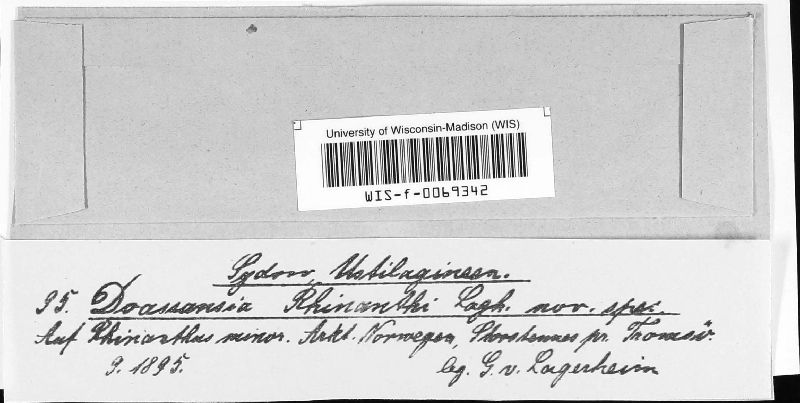 University of Wisconsin-Madison (WIS)
WIS-f-0069342
Sydow, Ustilagineen.
95. Doassansia Rhinanthi Lagh. nov. spec.
Auf Rhinanthus minor. Arkt. Norwegen, Storstennes pr. Tromsö.
9. 1895. leg. G. v. Lagerheim